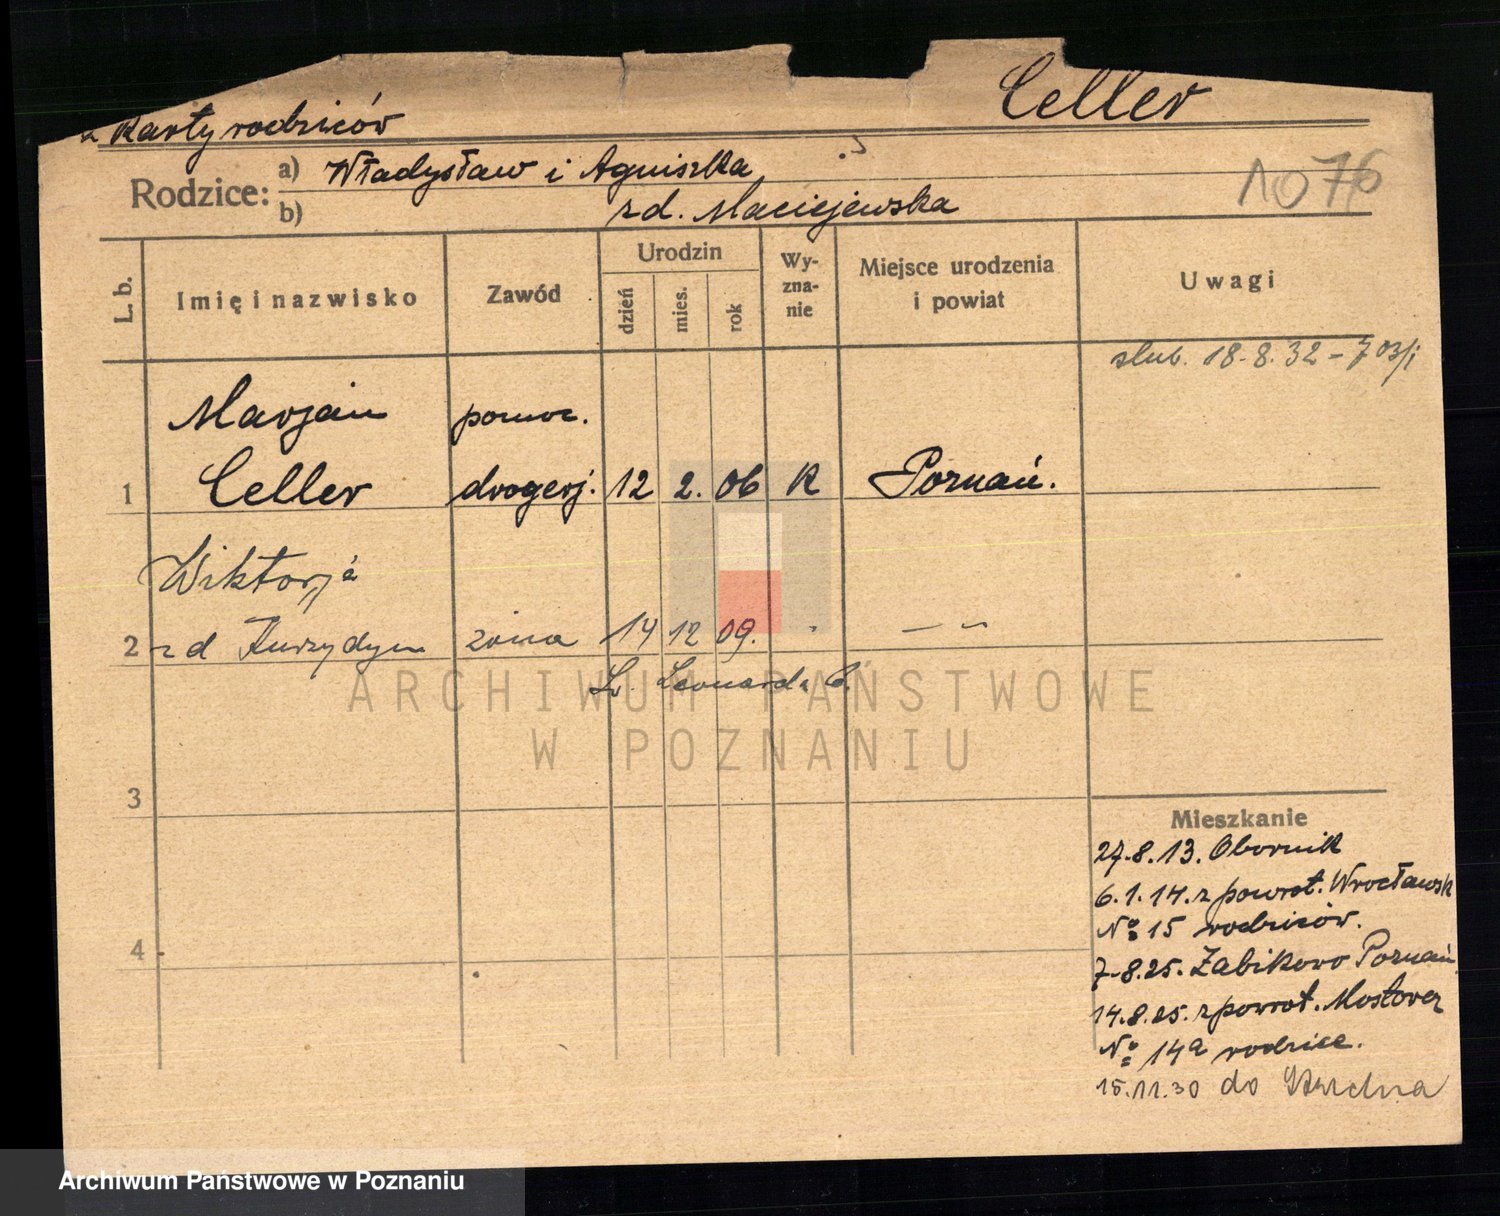 Celler
z karty rodziców
Rodzice: a) Władysław i Agniszka
b) zd. Maciejewska
1076
L. b.
Imię i nazwisko
Zawód
Urodzin
dzień
mies.
rok
Wy-
zna-
nie
Miejsce urodzenia
i powiat
Uwagi
slub. 18.8.32 -
Marjan pomoc.
1 Celler drogerj. 12 2. 06 K Poznań.
Wiktorja
2 zd żona 14 12 09. " — " —
Leonarda C.
ARCHIWUM PAŃSTWOWE
W POZNANIU
3
4
Mieszkanie
27.8.13. Obornik
6.1.14. z powrot. Wrocławsk
No 15 rodziców.
7.8.25. Żabikowo Poznań
14.8.25. z powrot. Mostowa
No 14a rodzice.
15.11.30 do
Archiwum Państwowe w Poznaniu